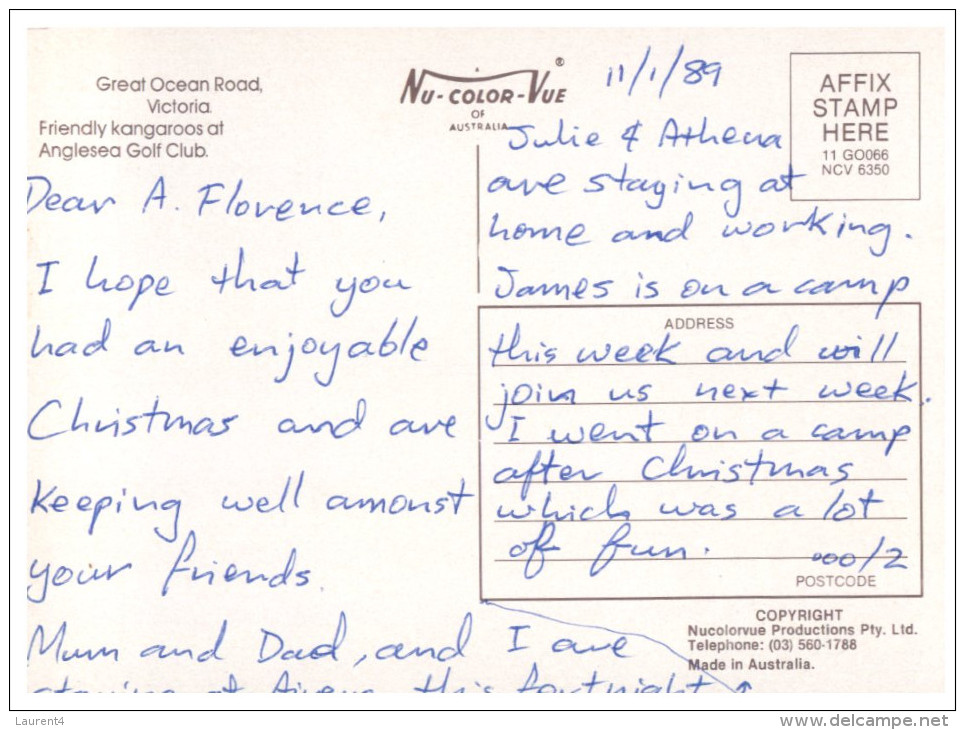 Great Ocean Road,
Victoria.
Friendly kangaroos at
Anglesea Golf Club.
NU-COLOR-VUE®
OF
AUSTRALIA
11/1/89
AFFIX
STAMP
HERE
11 GO066
NCV 6350
Dear A. Florence,
I hope that you
had an enjoyable
Christmas and are
keeping well amonst
your friends.
Mum and Dad, and I are
staying at this fortnight
Julie & Athena
are staying at
home and working.
James is on a camp
ADDRESS
this week and will
join us next week.
I went on a camp
after Christmas
which was a lot
of fun. ooo/2
POSTCODE
COPYRIGHT
Nucolorvue Productions Pty. Ltd.
Telephone: (03) 560-1788
Made in Australia.
Laurent4
www.delcampe.net